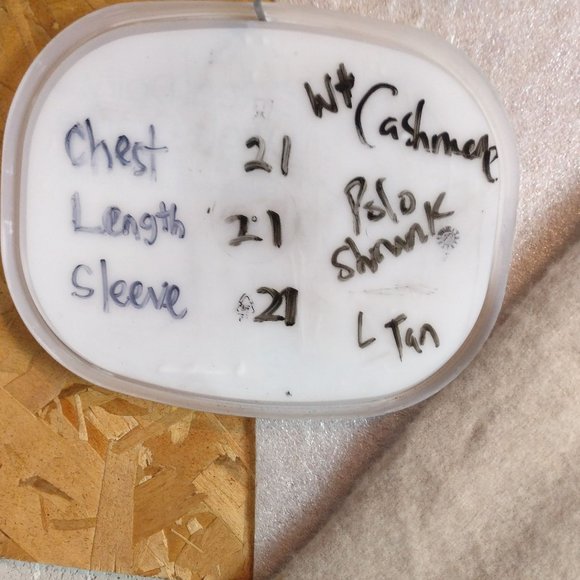 Chest 21
Length 21
Sleeve 21
W+ Cashmere
Polo
Shrunk
L Tan